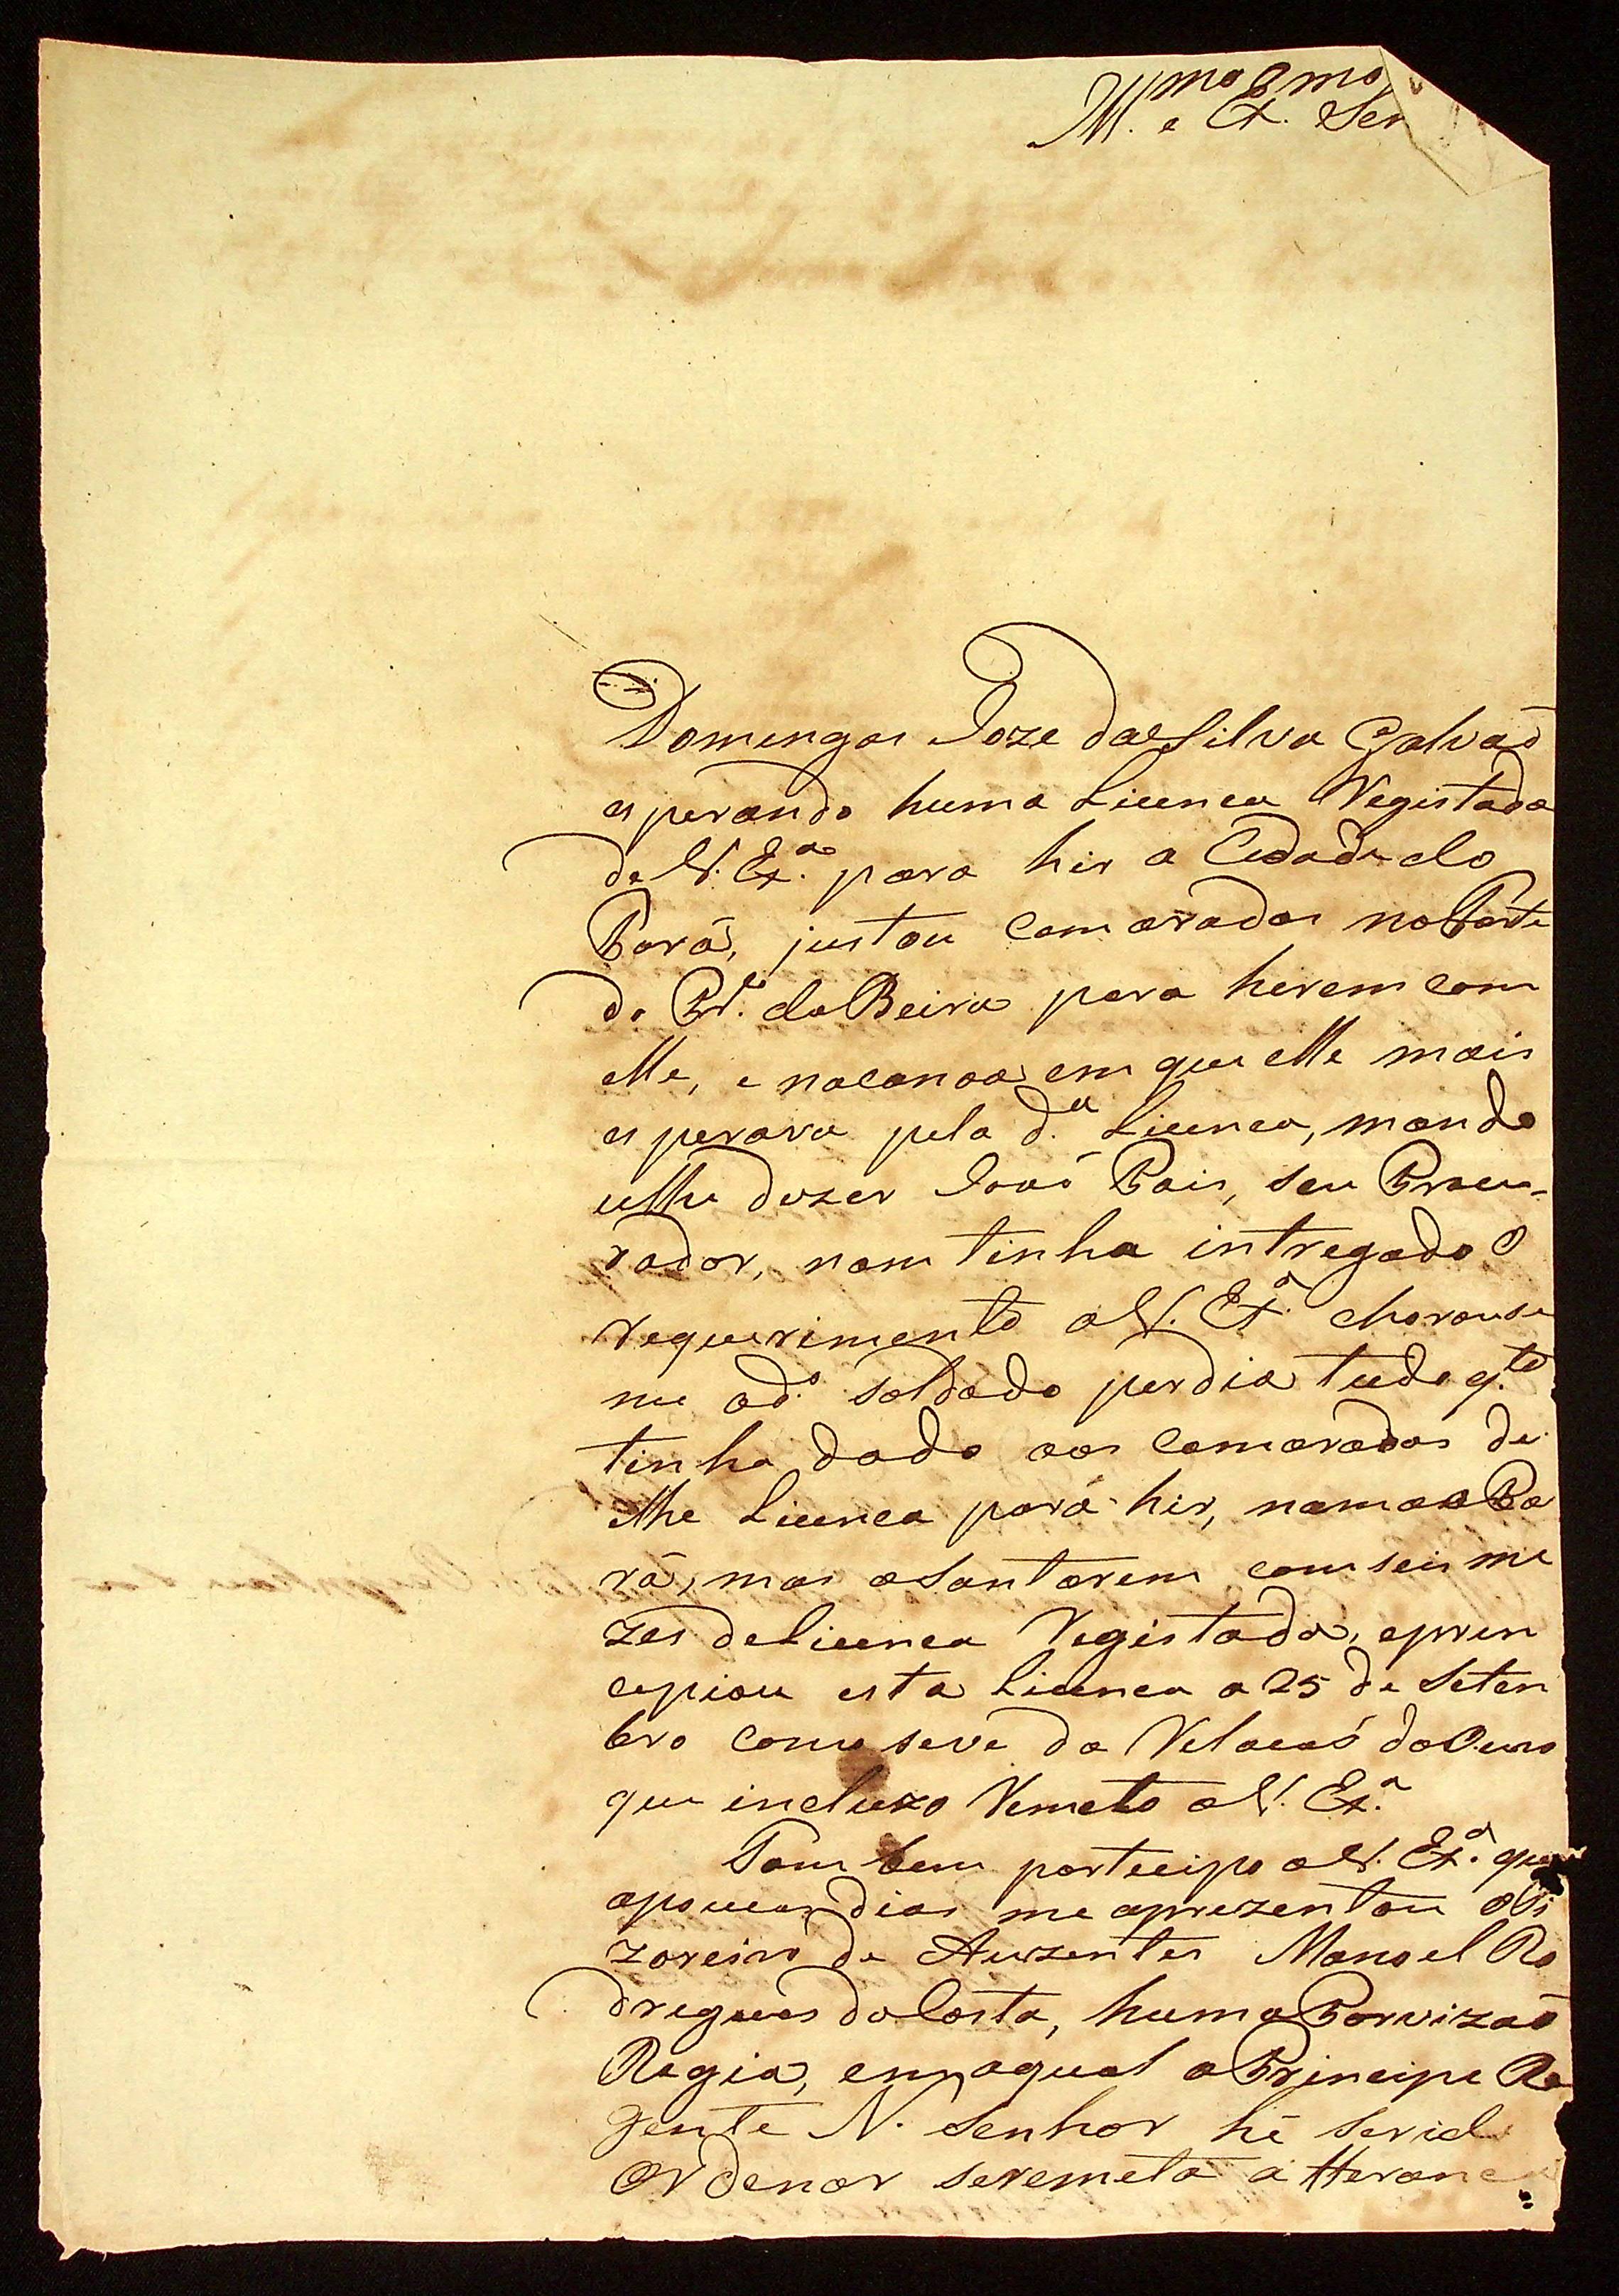 Ill.mo e Ex.mo Sen
Domingos Joze da Silva Galvaõ
esperando huma Licenca Registada
de V. Ex.a para hir a Cidade do
Pará, justou Camaradas no Forte
do P.e da Beira para hirem com
elle, e na canoa em que elle mais
esperava pela d.a Licenca, mando
ulhe dezer Joaõ Pais, seu Procu-
rador, nam tinha intregado o
requerimento a V. Ex.a chorouse
me o d.o soldado perdia tudo q.to
tinha dado aos Camaradas de
lhe Licenca pará hir, nam ao Pa
rá, mas a Santarem com seis me
zes de Licenca Registada, e prin
cepiou esta Licenca a 25 de Setem
bro como se ve da Relacaõ do
que incluzo Remeto a V. Ex.a
Tam bem partecipo a V. Ex.a que
a poucos dias me aprezentou o Ti
zoreiro de Auzentes Manoel Ro
drigues da Costa, huma Porvizaõ
Regia, em a qual o Principe Re
gente N. Senhor hé servid
Ordenar se remeta a Heranc